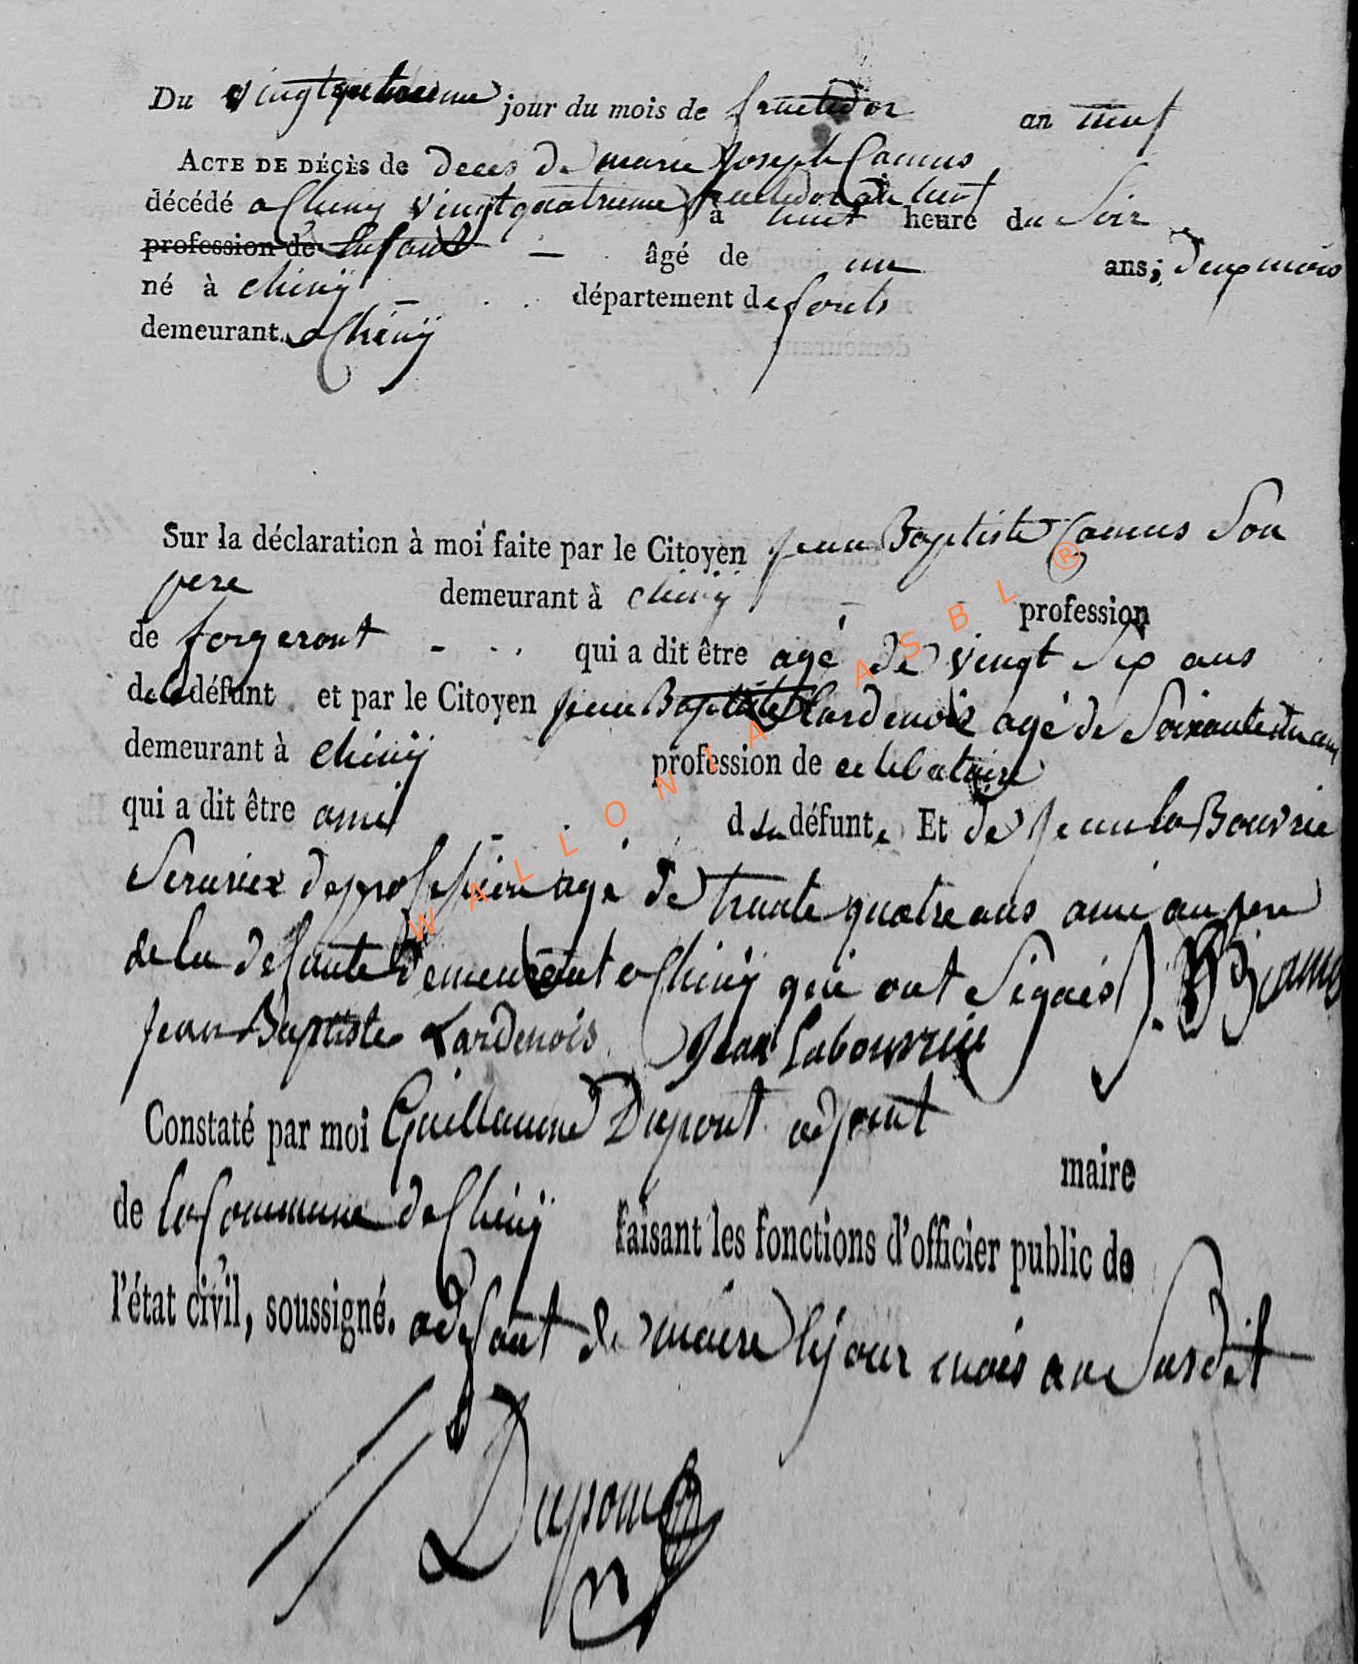 Du vingtquatrieme jour du mois de fructidor an neuf
ACTE DE DÉCÈS de deces de marie Joseph Camus
décédé a Chiny vingtquatrieme fructidor an neuf à heure du Soir
profession de Enfant — âgé de un ans; deux mois
né à chinÿ département de forets
demeurant a ChénŸ
Sur la déclaration à moi faite par le Citoyen jean Baptiste Camus Son
pere demeurant à chinÿ profession
de forgeront qui a dit être agé de vingt Six ans
de la défunt et par le Citoyen jean Baptiste Lardenois agé de Soixante
demeurant à chinÿ profession de celibataire
qui a dit être ami d la défunte Et de jean la Bouvrie
Serurier de profession agé de trante quatre ans ami au pere
de la defunte demeurant a Chinÿ qui ont Signés JB Camus
jean Baptiste Lardenois Jean Labouvrie
Constaté par moi Guillaume Dupont adjoint
maire
de la Commune de Chinÿ faisant les fonctions d'officier public de
l'état civil, soussigné. adjoint de maire le jour mois an Susdit
Dupont
WALLONIA ASBL ®